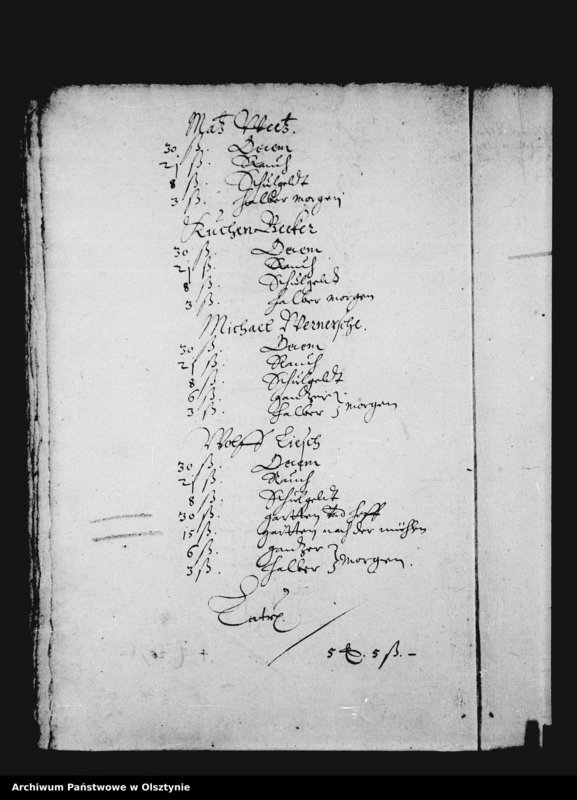 Matz Weetz.
30 ß. Decem
21 ß. Rauch
8 ß. Schulgeldt
3 ß. halber morgen
Kuchen Becker
30 ß. Decem
21 ß. Rauch
8 ß. Schulgeldt
3 ß. halber morgen
Michael Wernersche.
30 ß. Decem
21 ß. Rauch
8 ß. Schulgeldt
6 ß. gantzer
3 ß. halber } morgen
Wolff Liesch
30 ß. Decem
21 ß. Rauch
8 ß. Schulgeldt
30 ß. gartten vnd hoff
15 ß. gartten nach der mühlen
6 ß. gantzer
3 ß. halber } morgen.
Latus.
5 5 ß. –
Archiwum Państwowe w Olsztynie